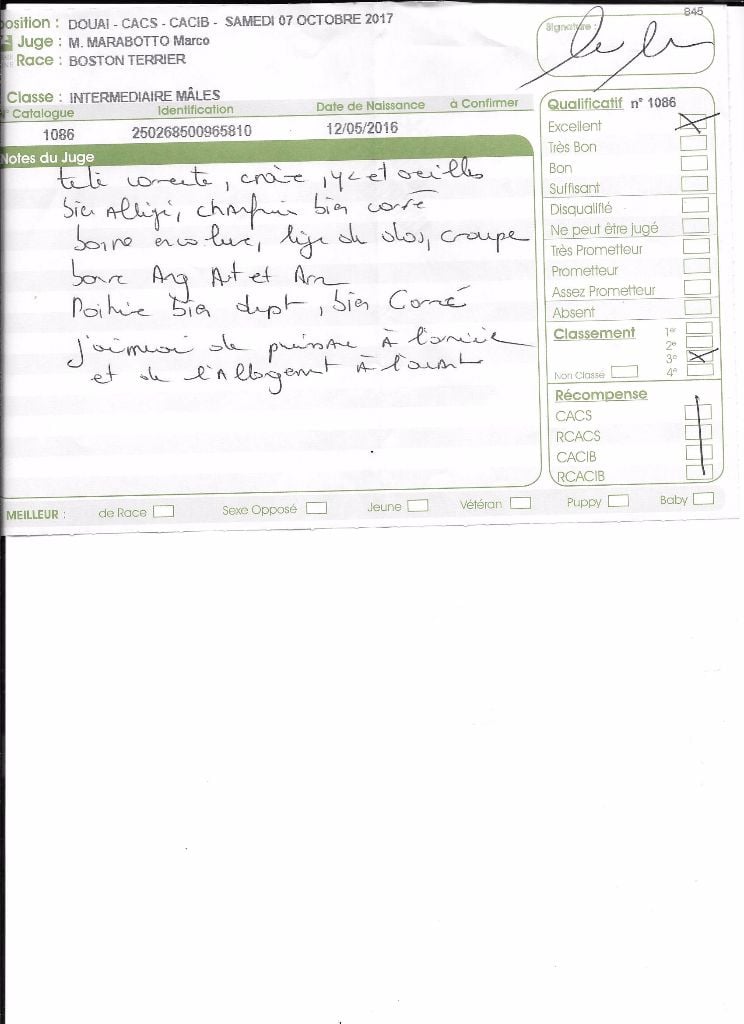 position : DOUAI - CACS - CACIB - SAMEDI 07 OCTOBRE 2017
845
Signature :
Juge : M. MARABOTTO Marco
Race : BOSTON TERRIER
Classe : INTERMEDIAIRE MÂLES
N° Catalogue Identification Date de Naissance à Confirmer
1086 250268500965810 12/05/2016
Notes du Juge
tete correcte, crâne, et oreilles
bien, chanfrein bien carré
bonne encolure, ligne de dos, croupe
bonne Ang Art et Arr
Poitrine bien dept, bien Corné
de à l'arrière
et de l'Allongement à l'avant
Qualificatif n° 1086
Excellent
Très Bon
Bon
Suffisant
Disqualifié
Ne peut être jugé
Très Prometteur
Prometteur
Assez Prometteur
Absent
Classement 1er
2e
3e
Non Classé 4e
Récompense
CACS
RCACS
CACIB
RCACIB
MEILLEUR : de Race Sexe Opposé Jeune Vétéran Puppy Baby